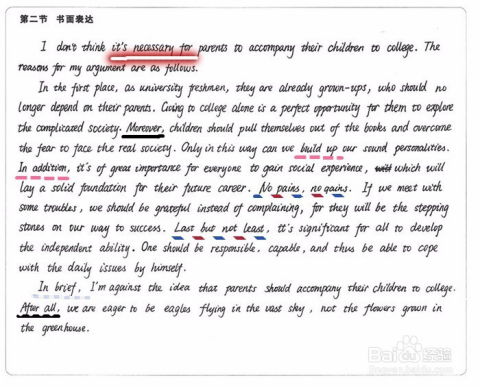 第二节 书面表达
I don't think it's necessary for parents to accompany their children to college. The
reasons for my argument are as follows.
In the first place, as university freshmen, they are already grown-ups, who should no
longer depend on their parents. Going to college alone is a perfect opportunity for them to explore
the complicated society. Moreover, children should pull themselves out of the books and overcome
the fear to face the real society. Only in this way can we build up our sound personalities.
In addition, it's of great importance for everyone to gain social experience, which will
lay a solid foundation for their future career. No pains, no gains. If we meet with
some troubles, we should be grateful instead of complaining, for they will be the stepping
stones on our way to success. Last but not least, it's significant for all to develop
the independent ability. One should be responsible, capable, and thus be able to cope
with the daily issues by himself.
In brief, I'm against the idea that parents should accompany their children to college.
After all, we are eager to be eagles flying in the vast sky, not the flowers grown in
the greenhouse.
Baidu经验
jingyan.baidu.com